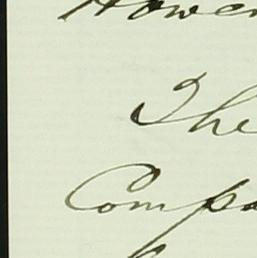 Howe
The
Compa